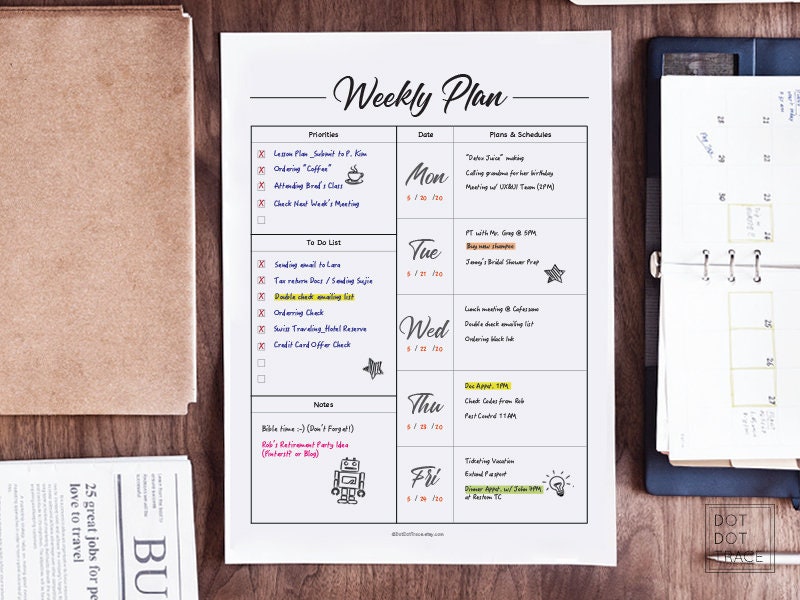 Weekly Plan
Priorities
X Lesson Plan _Submit to P. Kim
X Ordering "Coffee"
X Attending Brad's Class
X Check Next Week's Meeting
To Do List
X Sending email to Lara
X Tax return Docs / Sending Sujie
X Double check emailing list
X Ordering Check
X Swiss Traveling_Hotel Reserve
X Credit Card Offer Check
Notes
Bible time :-) (Don't Forget!)
Rob's Retirement Party Idea
(Pinterst? or Blog)
Date
Plans & Schedules
Mon
5 / 20 /20
"Detox Juice" making
Calling grandma for her birthday
Meeting w/ UX&UI Team (2PM)
Tue
5 / 21 /20
PT with Mr. Greg @ 5PM
Buy new shampoo
Jenny's Bridal Shower Prep
Wed
5 / 22 /20
Lunch meeting @ Cafessano
Double check emailing list
Ordering black Ink
Thu
5 / 23 /20
Doc Appt. 1PM
Check Codes from Rob
Pest Control 11AM
Fri
5 / 24 /20
Ticketing Vacation
Extend Passport
Dinner Appt. w/ John 7PM
at Restom TC
©DotDotTrace.etsy.com
25 great jobs for pe
love to travel
BU
23
21
22
23
24
30
25
26
27
DOT
DOT
TRACE